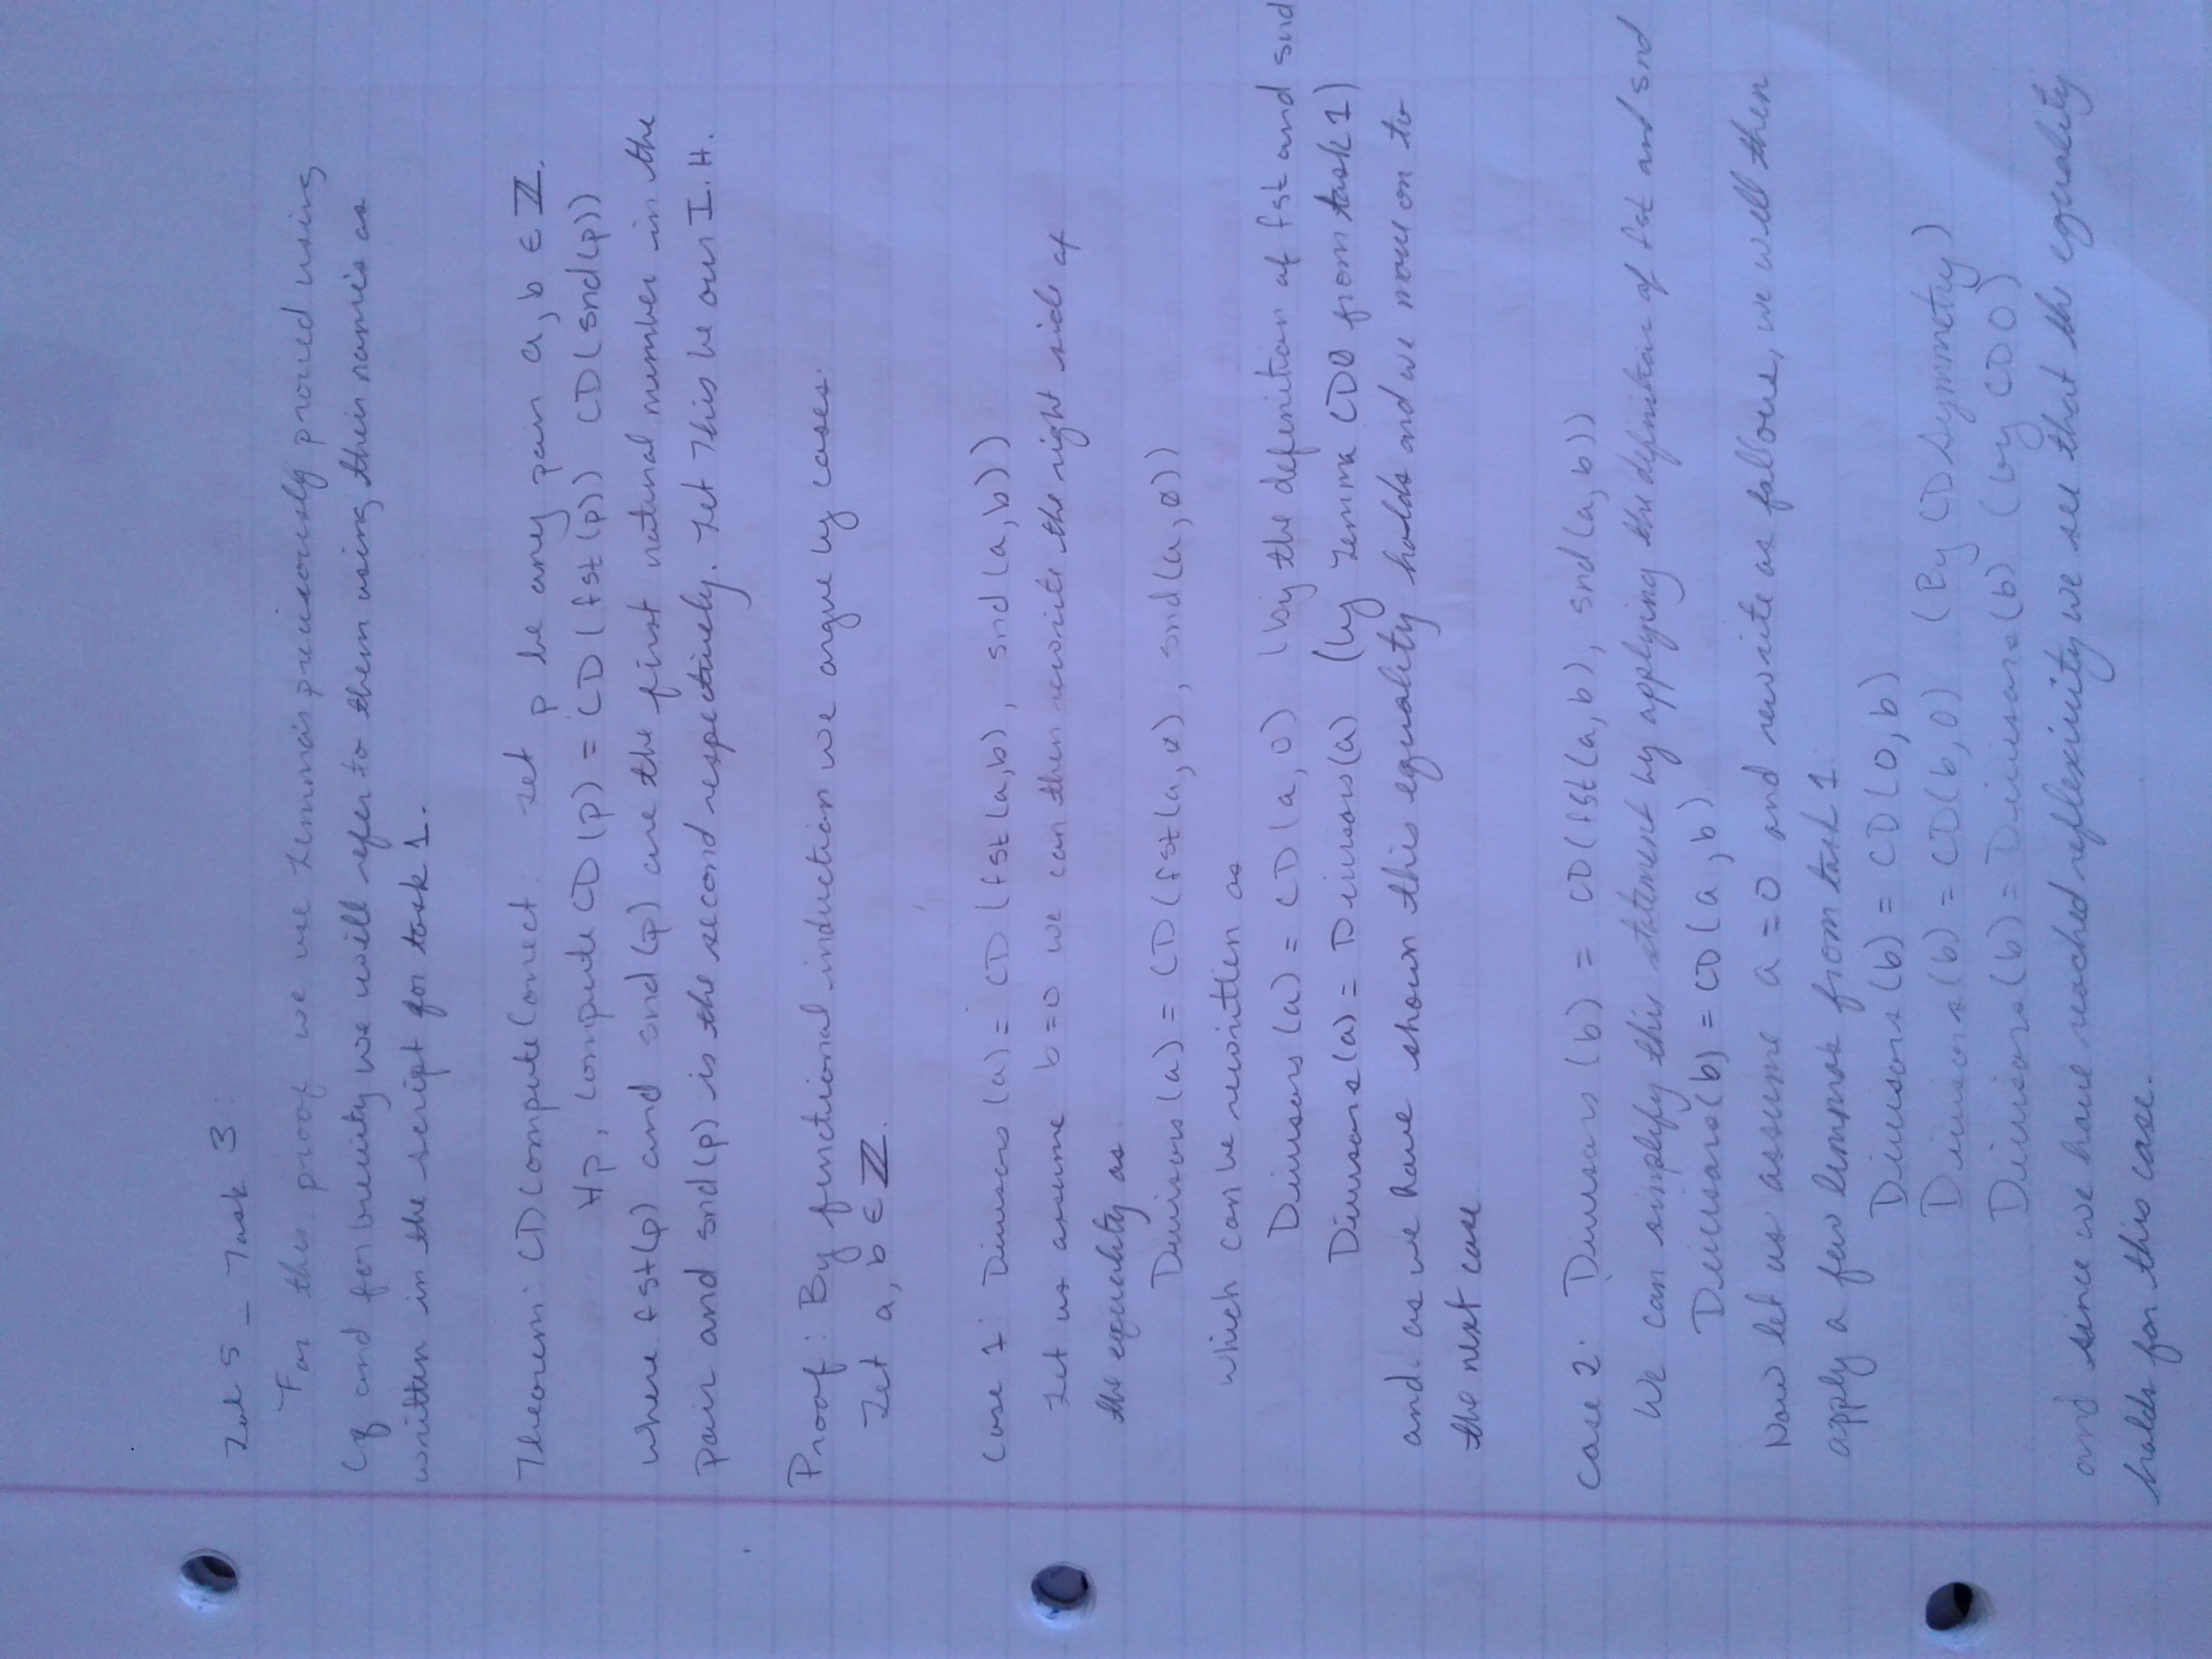 Lab 5 - Task 3:
For this proof we use Lemma's previously proved using
Coq and for brevity we will refer to them using their name's as
written in the script for task 1.
Theorem: CD Compute Correct: Let p be any pair a, b ∈ ℤ.
∀p, compute CD (p) = CD (fst (p)) CD (snd (p))
where fst(p) and snd (p) are the first natural number in the
pair and snd (p) is the second respectively. Let This be our I.H.
Proof: By functional induction we argue by cases.
Let a, b ∈ ℤ.
Case 1: Divisors (a) = CD (fst (a,b), snd (a,b))
Let us assume b=0 we can then rewrite the right side of
the equality as
Divisors (a) = CD (fst (a, 0), snd (a, 0))
which can be rewritten as
Divisors (a) = CD (a, 0) (by the definition of fst and snd
Divisors (a) = Divisors (a) (by Lemma CD0 from task 1)
and as we have shown this equality holds and we move on to
the next case
case 2: Divisors (b) = CD (fst (a, b), snd (a, b))
We can simplify this statement by applying the definition of fst and snd
Divisors (b) = CD (a, b)
Now let us assume a = 0 and rewrite as follows, we will then
apply a few lemmas from task 1.
Divisors (b) = CD (0, b)
Divisors (b) = CD (b, 0) (By CD Symmetry)
Divisors (b) = Divisors (b) (by CD0)
and since we have reached reflexivity we see that the equality
holds for this case.